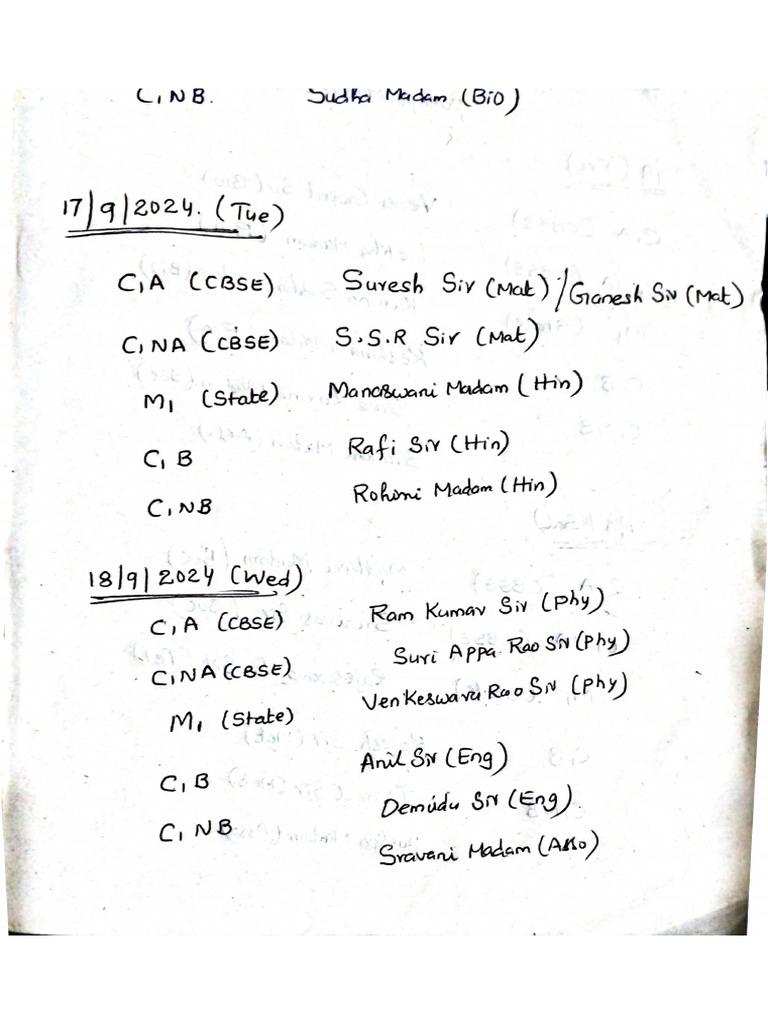 C1NB. Sudha Madam (Bio)
17/9/2024. (Tue)
C1A (CBSE) Suresh Sir (Mat)/Ganesh Sir (Mat)
C1NA (CBSE) S.S.R Sir (Mat)
M1 (State) Manaswani Madam (Hin)
C1B Rafi Sir (Hin)
C1NB Rohini Madam (Hin)
18/9/2024 (Wed)
C1A (CBSE) Ram Kumar Sir (Phy)
C1NA (CBSE) Suri Appa Rao Sir (Phy)
M1 (State) Venkeswara Rao Sir (Phy)
C1B Anil Sir (Eng)
C1NB Demudu Sir (Eng)
Sravani Madam